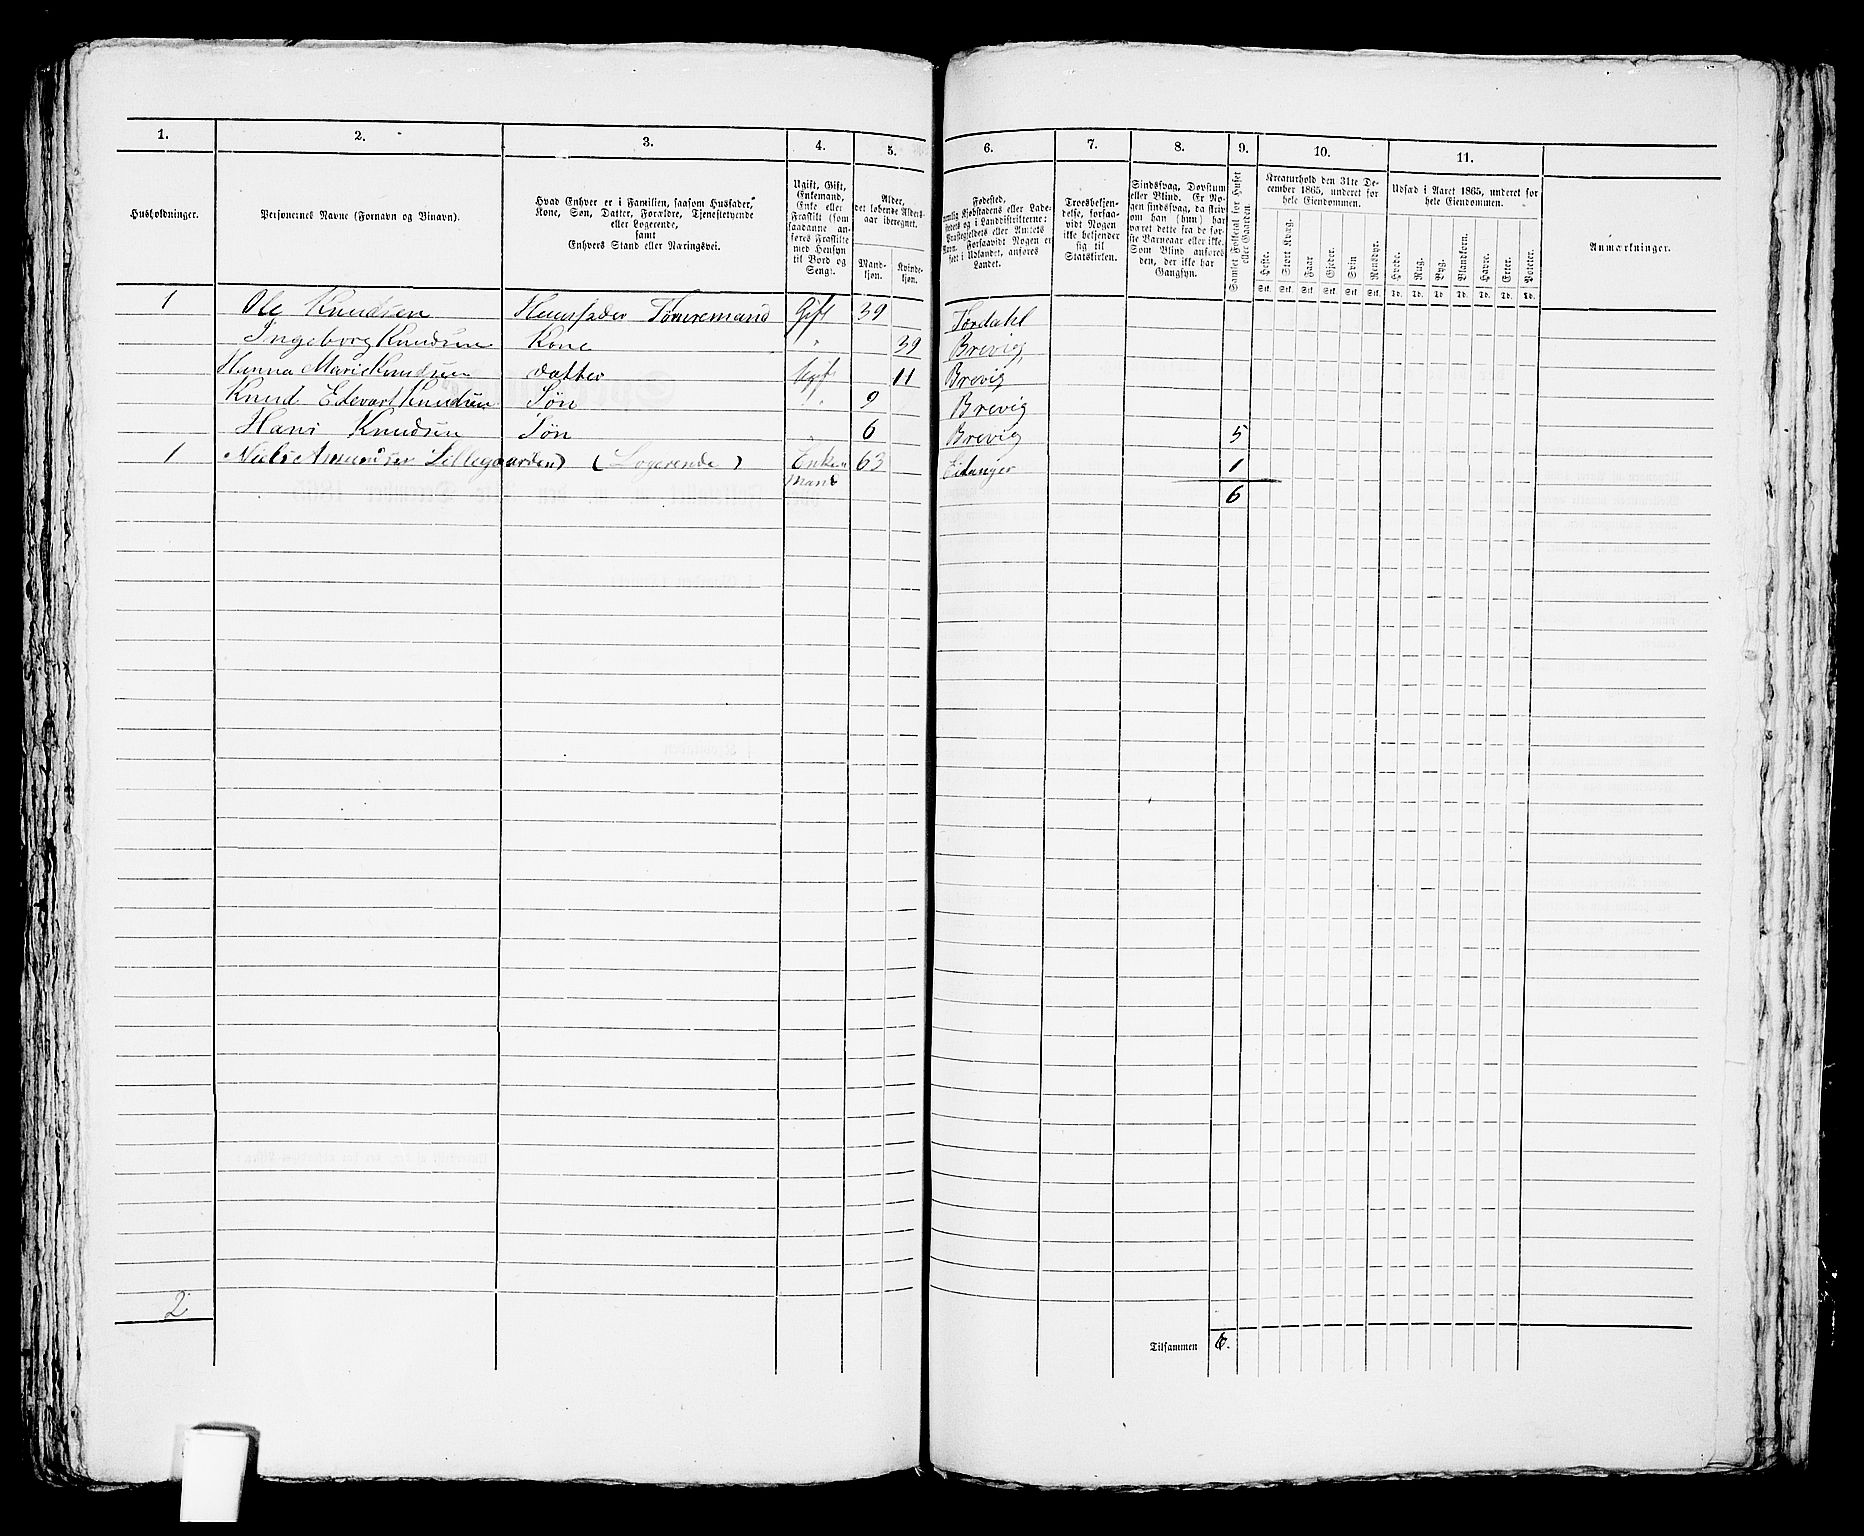 1. 2. 3. 4. 5. 6. 7. 8. 9. 10. 11.
Husholdninger.
Personernes Navne (Fornavn og Binavn).
Hvad Enhver er i Familien, saasom Husfader,
Kone, Søn, Datter, Forældre, Tjenestetyende
eller Logerende,
samt
Enhvers Stand eller Næringsvei.
Ugift, Gift,
Enkemand,
Enke eller
Fraskilt (som
saadanne an-
føres Fraskilte
med Hensyn
til Bord og
Seng).
Alder,
det løbende Alders-
aar iberegnet.
Mand-
kjøn.
Kvinde-
kjøn.
Fødested,
nemlig Kjøbstadens eller Lade-
stedets og i Landdistrikterne:
Præstegjeldets eller Amtets
Navn. Forsaavidt Nogen er
født i Udlandet, anføres
Landet.
Troesbekjen-
delse, forsaa-
vidt Nogen
ikke bekjender
sig til
Statskirken.
Sindssvag, Døvstum
eller Blind. Er No-
gen sindssvag, da skriv
om han (hun) har
været dette fra de før-
ste Barneaar eller ikke.
Som Blind anføres
den, der ikke har
Gangsyn.
Samlet Folketal for Huset
eller Gaarden.
Kreaturhold den 31te De-
cember 1865, underet for
hele Eiendommen.
Heste. Stort Kvæg. Faar Gjeder. Svin Rensdyr.
Stk. Stk. Stk. Stk. Stk. Stk.
Udsæd i Aaret 1865, underet for
hele Eiendommen.
Hvede. Rug. Byg. Blandkorn. Havre. Erter. Poteter.
Td. Td. Td. Td. Td. Td. Td.
Anmærkninger.
1 Ole Knudsen Huusfader Tømremand Gift 39 Tørdahl
Ingeborg Knudsen Kone " 39 Brevig
Hanna Marie Knudsen datter Ugift 11 Brevig
Knud Edevart Knudsen Søn " 9 Brevig
Hans Knudsen Søn 6 Brevig 5
1 Niels Amundsen Lillegaarden) (Logerende) Enke 63 Eidanger 1
mand 6
2
Tilsammen 6.